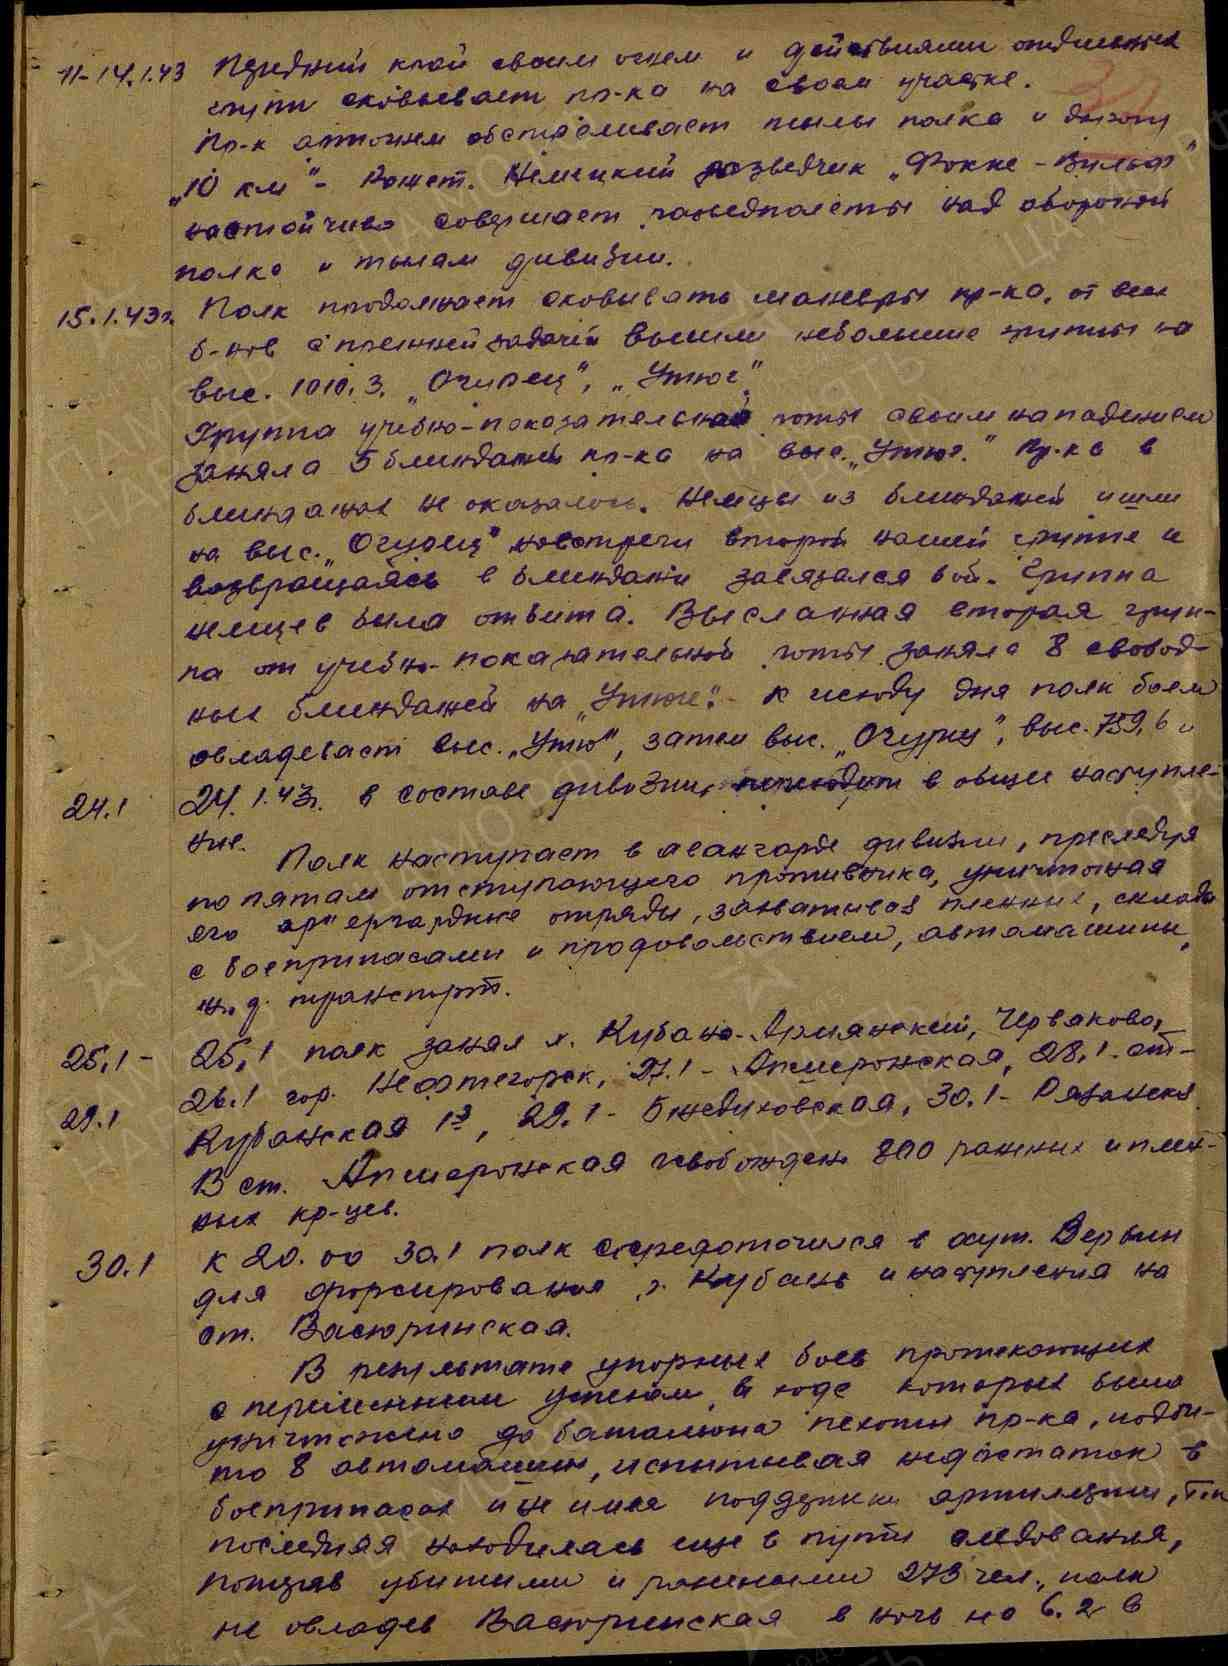 11-14.1.43 Передний край своим огнем и действиями отдельных
групп сковывает пр-ка на своем участке.
Пр-к артогнем обстреливает тылы полка и дорогу
„10 км" - Рожет. Немецкий разведчик „Фокке-Вульф"
настойчиво совершает разведполеты над обороной
полка и тылам дивизии.
15.1.43г. Полк продолжает сковывать маневры пр-ка, от всех
б-нов с прежней задачей вышли небольшие группы на
выс. 1010.3, „Огурец", „Утюг"
Группа учебно-показательной роты своим нападением
заняла 5 блиндажей пр-ка на выс. „Утюг." Пр-ка в
блиндажах не оказалось. Немцы из блиндажей ушли
на выс. „Огурец" навстречу второй нашей группе и
возвращаясь в блиндажи завязался бой. Группа
немцев была отбита. Высланная вторая груп-
па от учебно-показательной роты заняла 8 свобод-
ных блиндажей на „Утюге". - К исходу дня полк боем
овладевает выс. „Утюг", затем выс. „Огурец", выс. 759,6 и
24.1 24.1.43г. в составе дивизии, переходит в общее наступле-
ние.
Полк наступает в авангарде дивизии, преследуя
по пятам отступающего противника, уничтожая
его арьергардные отряды, захватывая пленных, склады
с боеприпасами и продовольствием, автомашины,
ж.д. транспорт.
25.1 - 25.1 полк занял х. Кубано-Армянский, Червяково,
26.1 гор. Нефтегорск, 27.1 - Апшеронская, 28.1. ст-
29.1 Кубанская 1я, 29.1 - Бжедуховская, 30.1 - Рязанская
В ст. Апшеронская освобождено 800 раненых и плен-
ных кр-цев.
30.1 К 20.00 30.1 полк сосредоточился в хут.
для форсирования р. Кубань и наступления на
ст. Васюринская.
В результате упорных боев протекающих
с переменным успехом, в ходе которых было
уничтожено до батальона пехоты пр-ка, подби-
то 8 автомашин, испытывая недостаток в
боеприпасах и не имея поддержки артиллерии, т.к
последняя находилась еще в пути следования,
потеряв убитыми и ранеными 273 чел., полк
не овладев Васюринская в ночь на 6.2 в